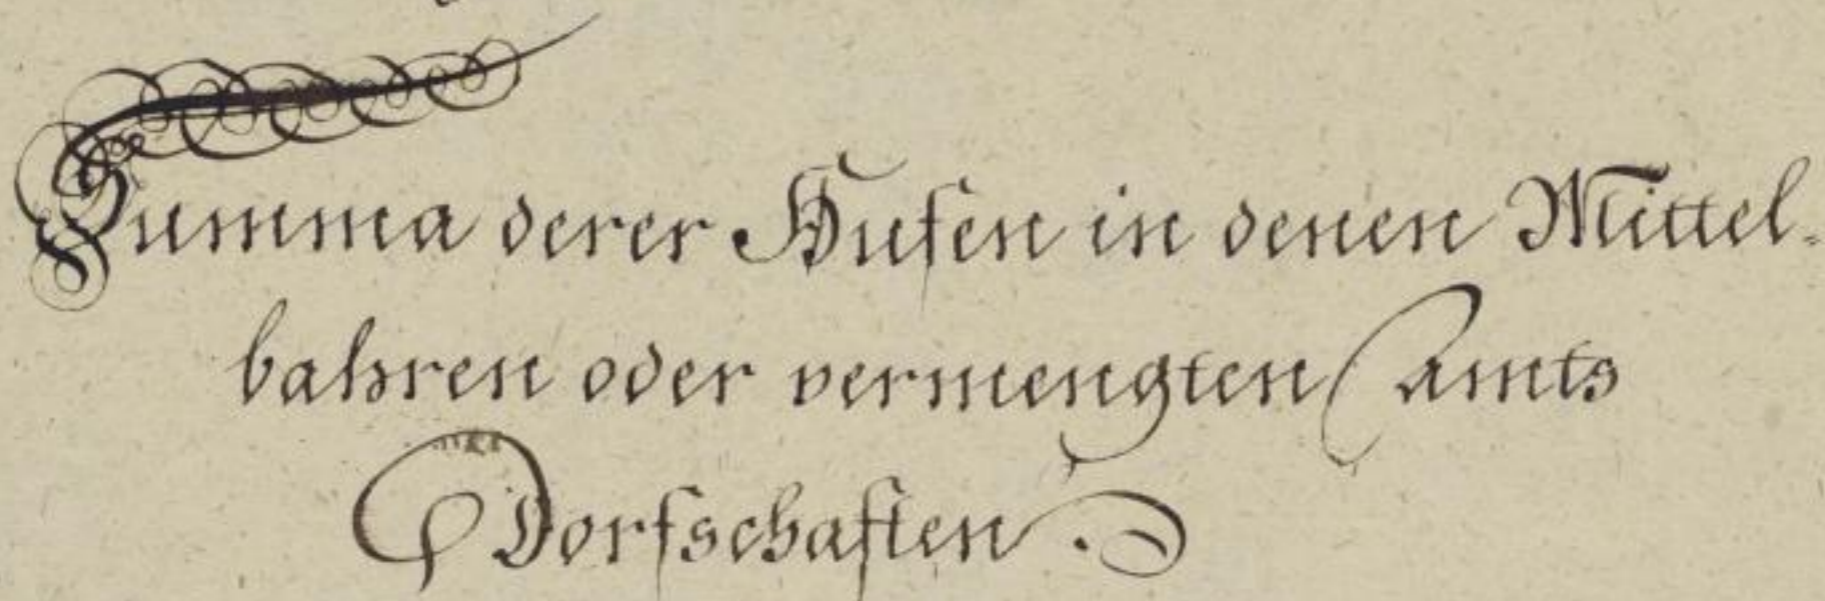 Summa derer Hufen in denen Mittel-
bahren oder vermengten Amts
Dorfschaften.